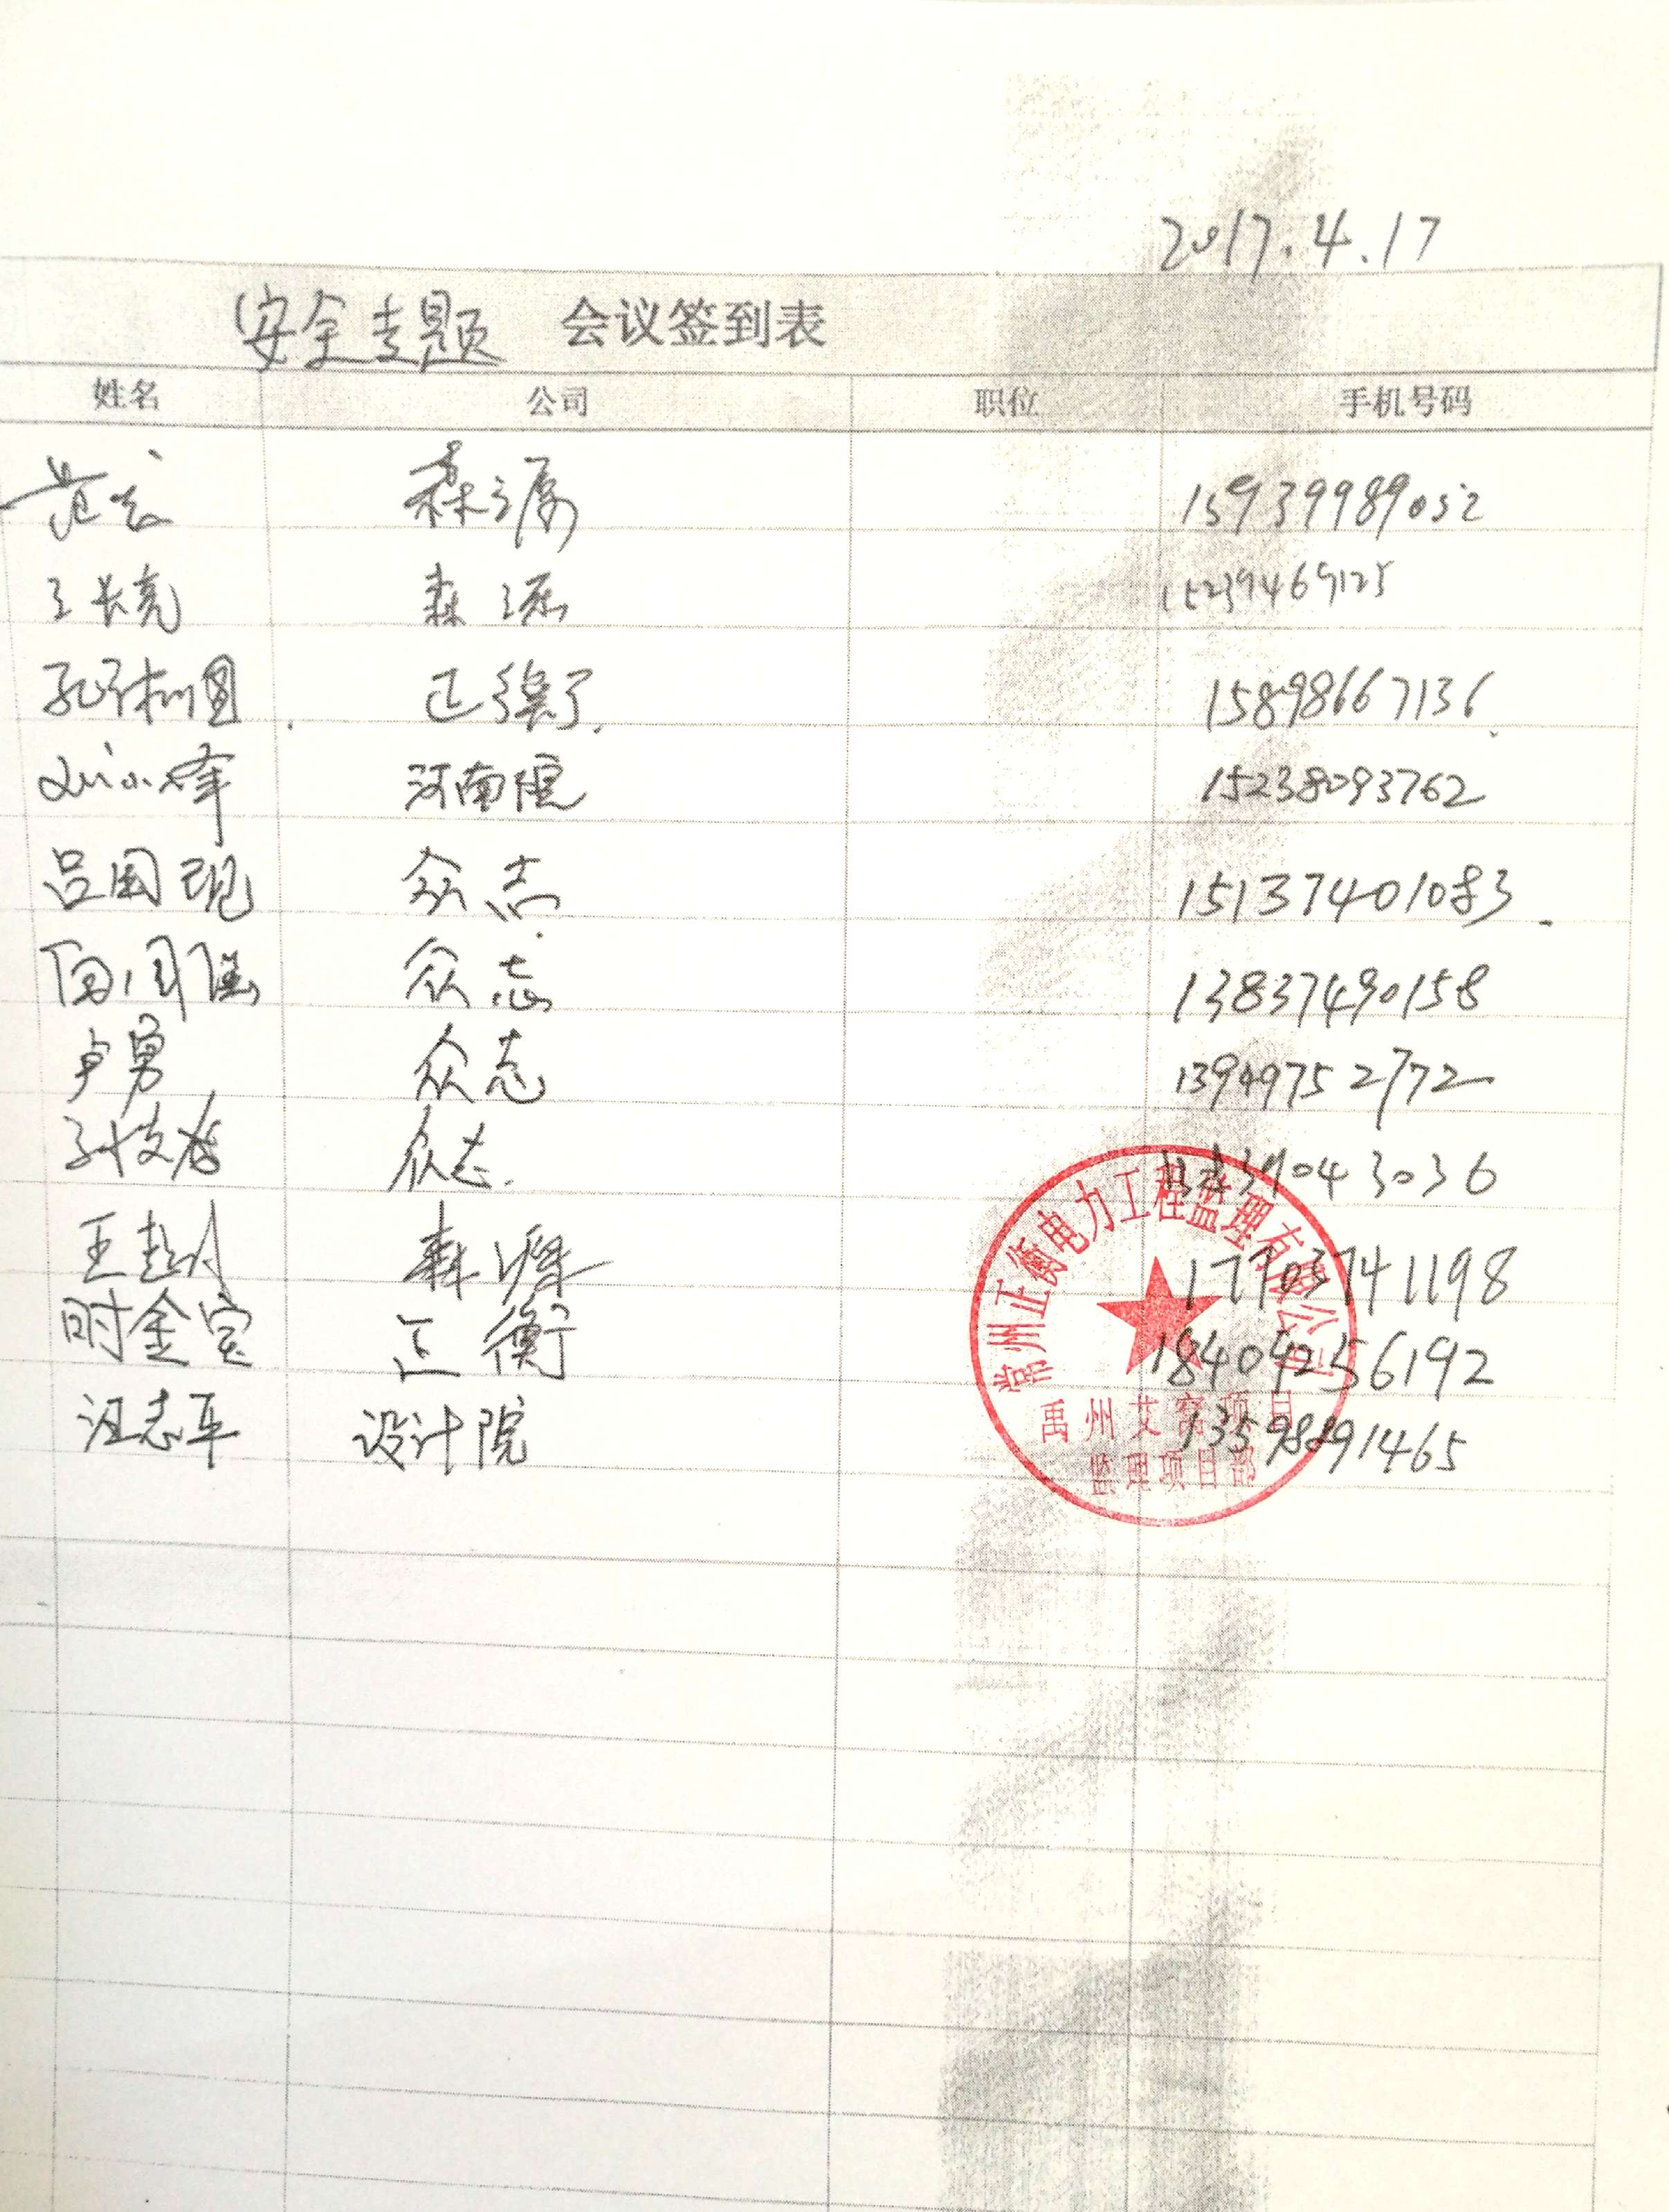 2017.4.17
安全专题 会议签到表
姓名 公司 职位 手机号码
森源 15939989052
王长亮 森源 15239469125
孔树国 正衡 15898667136
刘小峰 河南院 15238093762
吕国现 众志 15137401083
众志 13837490158
卢勇 众志 13949752772
众志 043036
森源 17703741198
时金宝 正衡 18404256192
汪志军 设计院 13598891465
常州正衡电力工程监理有限公司
禹州艾窝项目
监理项目部